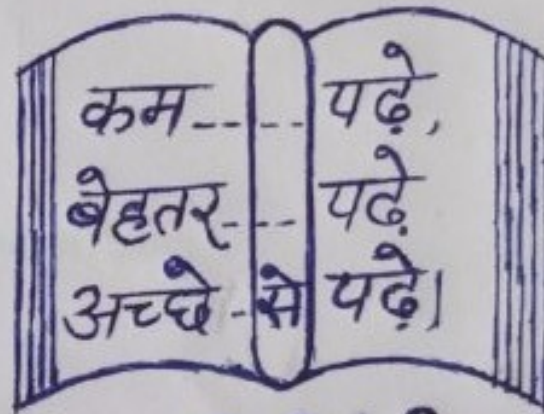 कम----- पढे़,
बेहतर---- पढे़
अच्छे-से पढे़।